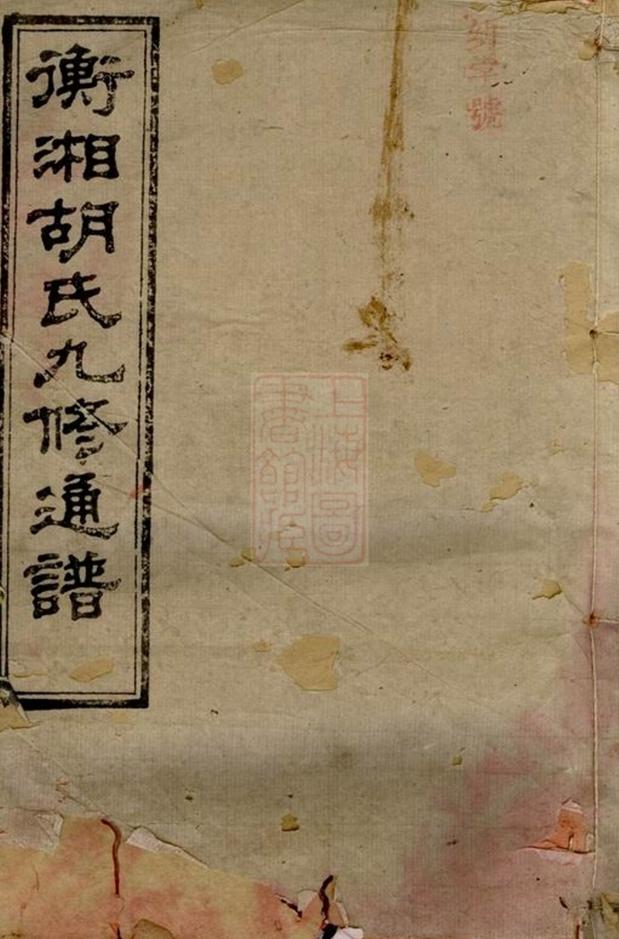 衡湘胡氏九修通譜
號
上海圖
書館藏